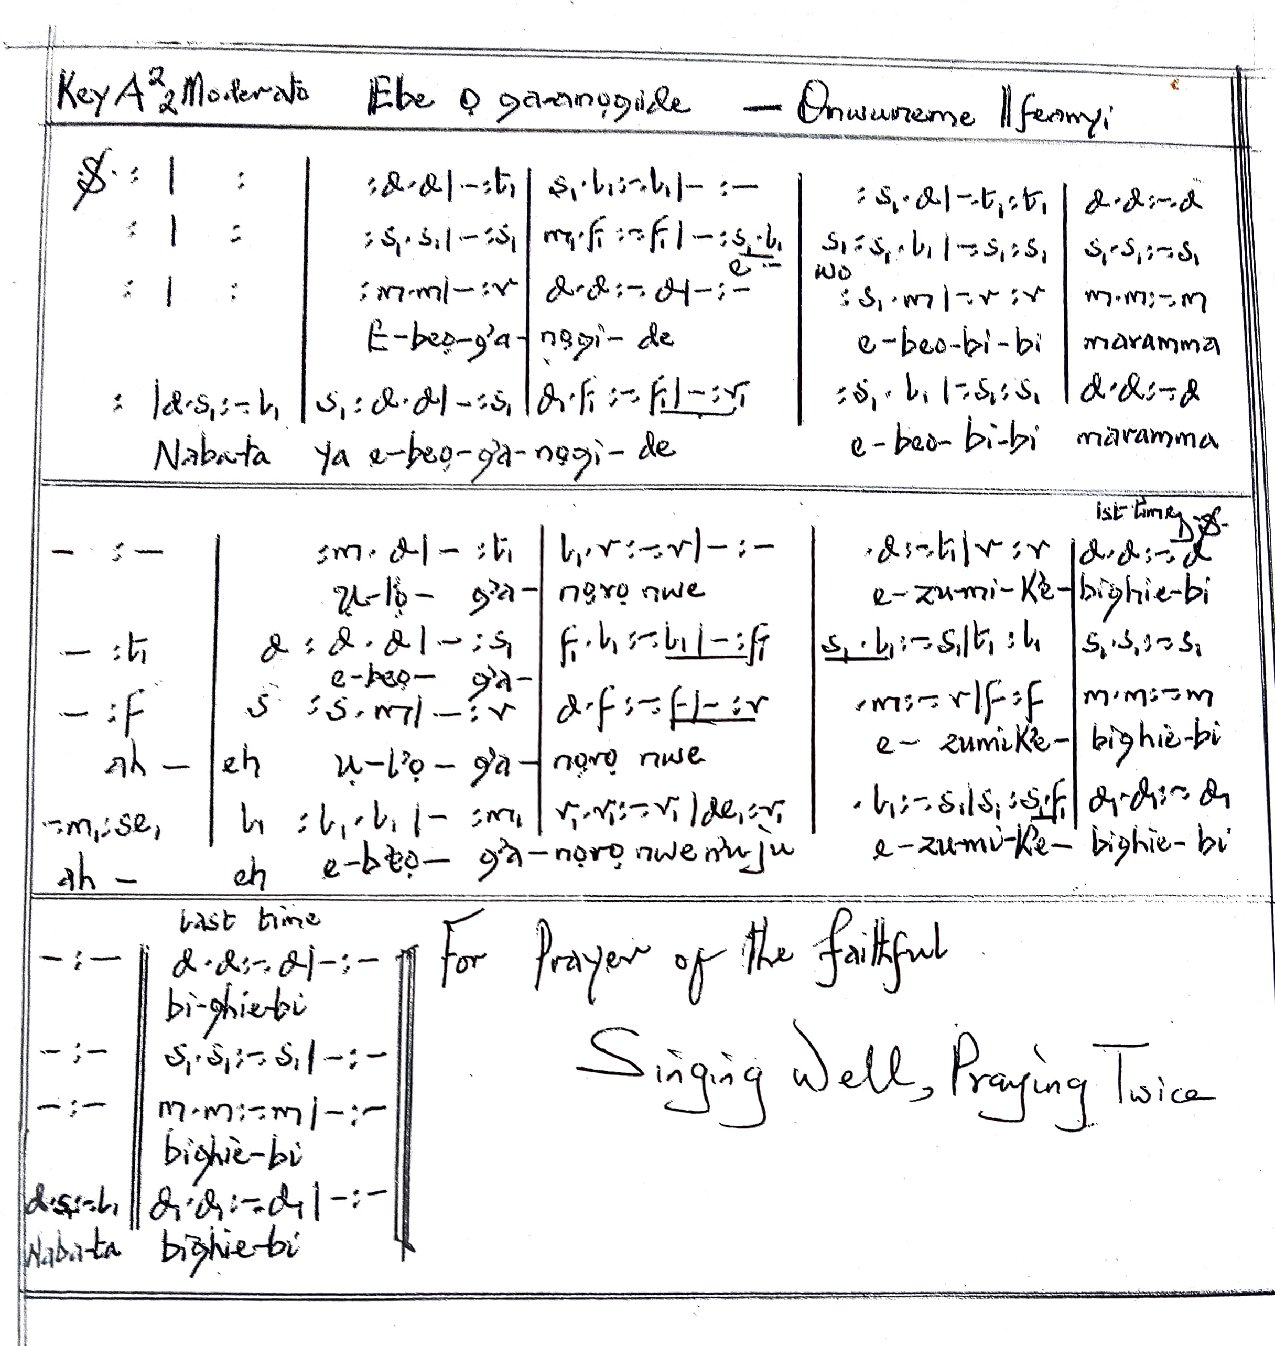 Key A 2/2 Moderato Ebe Ọ ga-anọgide — Onwureme Ifeanyi
𝄋 : | : | :d.d|-:t₁ | s₁.l₁:-.l₁|- :- | :s₁.d|-.t₁:t₁ | d.d:-.d
: | : | :s₁.s₁|-:s₁ | m₁.f₁:-.f₁|-:s₁.l₁ | s₁:s₁.l₁|-.s₁:s₁ | s₁.s₁:-.s₁
e - wo
: | : | :m.m|-:r | d.d:-.d|-:- | :s₁.m|-.r:r | m.m:-.m
E-beọ-g'a-nọgi-de e-beo-bi-bi maramma
: |d.s₁:-.l₁ | s₁:d.d|-:s₁ | d₁.f₁:-.f₁|-:r₁ | :s₁.l₁|-.s₁:s₁ | d.d:-.d
Naba-ta ya e-beọ-g'a-nọgi-de e-beo-bi-bi maramma
1st time D.𝄋.
- :- | :m.d|- :t₁ | l₁.r:-.r|-:- | .d:-.t₁|r:r | d.d:-.d
ụ-lọ- g'a-nọrọ nwe e-zu-mi-Ke-bighie-bi
- :t₁ | d:d.d|-:s₁ | f₁.l₁:-.l₁|-:f₁ | s₁.l₁:-.s₁|t₁:l₁ | s₁.s₁:-.s₁
e-beọ- g'a-
- :f | s :s.m|-:r | d.f:-.f|-:r | .m:-.r|f:f | m.m:-.m
ah - eh ụ-l'ọ- g'a-nọrọ nwe e- zumiKe-bighie-bi
-.m₁:se₁ | l₁ :l₁.l₁|- :m₁ | r₁.r₁:-.r₁|de₁:r₁ | .l₁:-.s₁|s₁:s₁.f₁ | d₁.d₁:-.d₁
ah - eh e-beọ- g'a-nọrọ nwe n'uju e-zu-mi-Ke-bighie-bi
Last time
-:- || d.d:-.d|-:- For Prayer of the faithful
bi-ghie-bi
-:- || s₁.s₁:-.s₁|-:- Singing Well, Praying Twice
-:- || m.m:-.m|-:-
bighie-bi
d.s₁:-.l₁ || d₁.d₁:-.d₁|-:-
Naba-ta bighie-bi